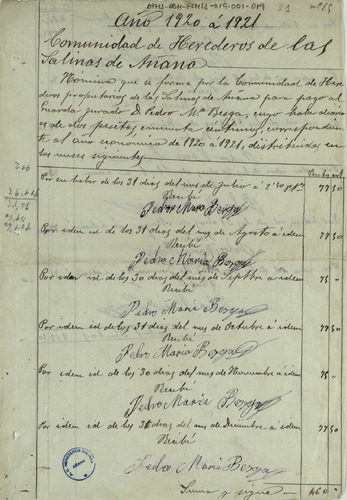 Año 1920 á 1921
Comunidad de Herederos de las
Salinas de Añana
Nomina que se forma por la Comunidad de Here
deros propietarios de las Salinas de Añana para pago al
Guarda jurado D. Pedro Mª Berga, cuyo haber diario
es de dos pesetas, cincuenta céntimos, correspondien
te al año economico de 1920 á 1921, distribuidas en
los meses siguientes
Por su haber de los 31 dias del mes de Julio á 2'50 ptas 77 50
Recibí
Pedro María Berga
Por idem id de los 31 dias del mes de Agosto á idem 77 50
Recibí
Pedro María Berga
Por idem id de los 30 dias del mes de Septbre á idem 75 "
Recibí
Pedro María Berga
Por idem id de los 31 dias del mes de Octubre á idem 77 50
Recibí
Pedro María Berga
Por idem id de los 30 dias del mes de Noviembre á idem 75 "
Recibí
Pedro María Berga
Por idem id de los 31 dias del mes de Diciembre á idem 77 50
Recibí
Pedro María Berga
Suma y sigue 460 "